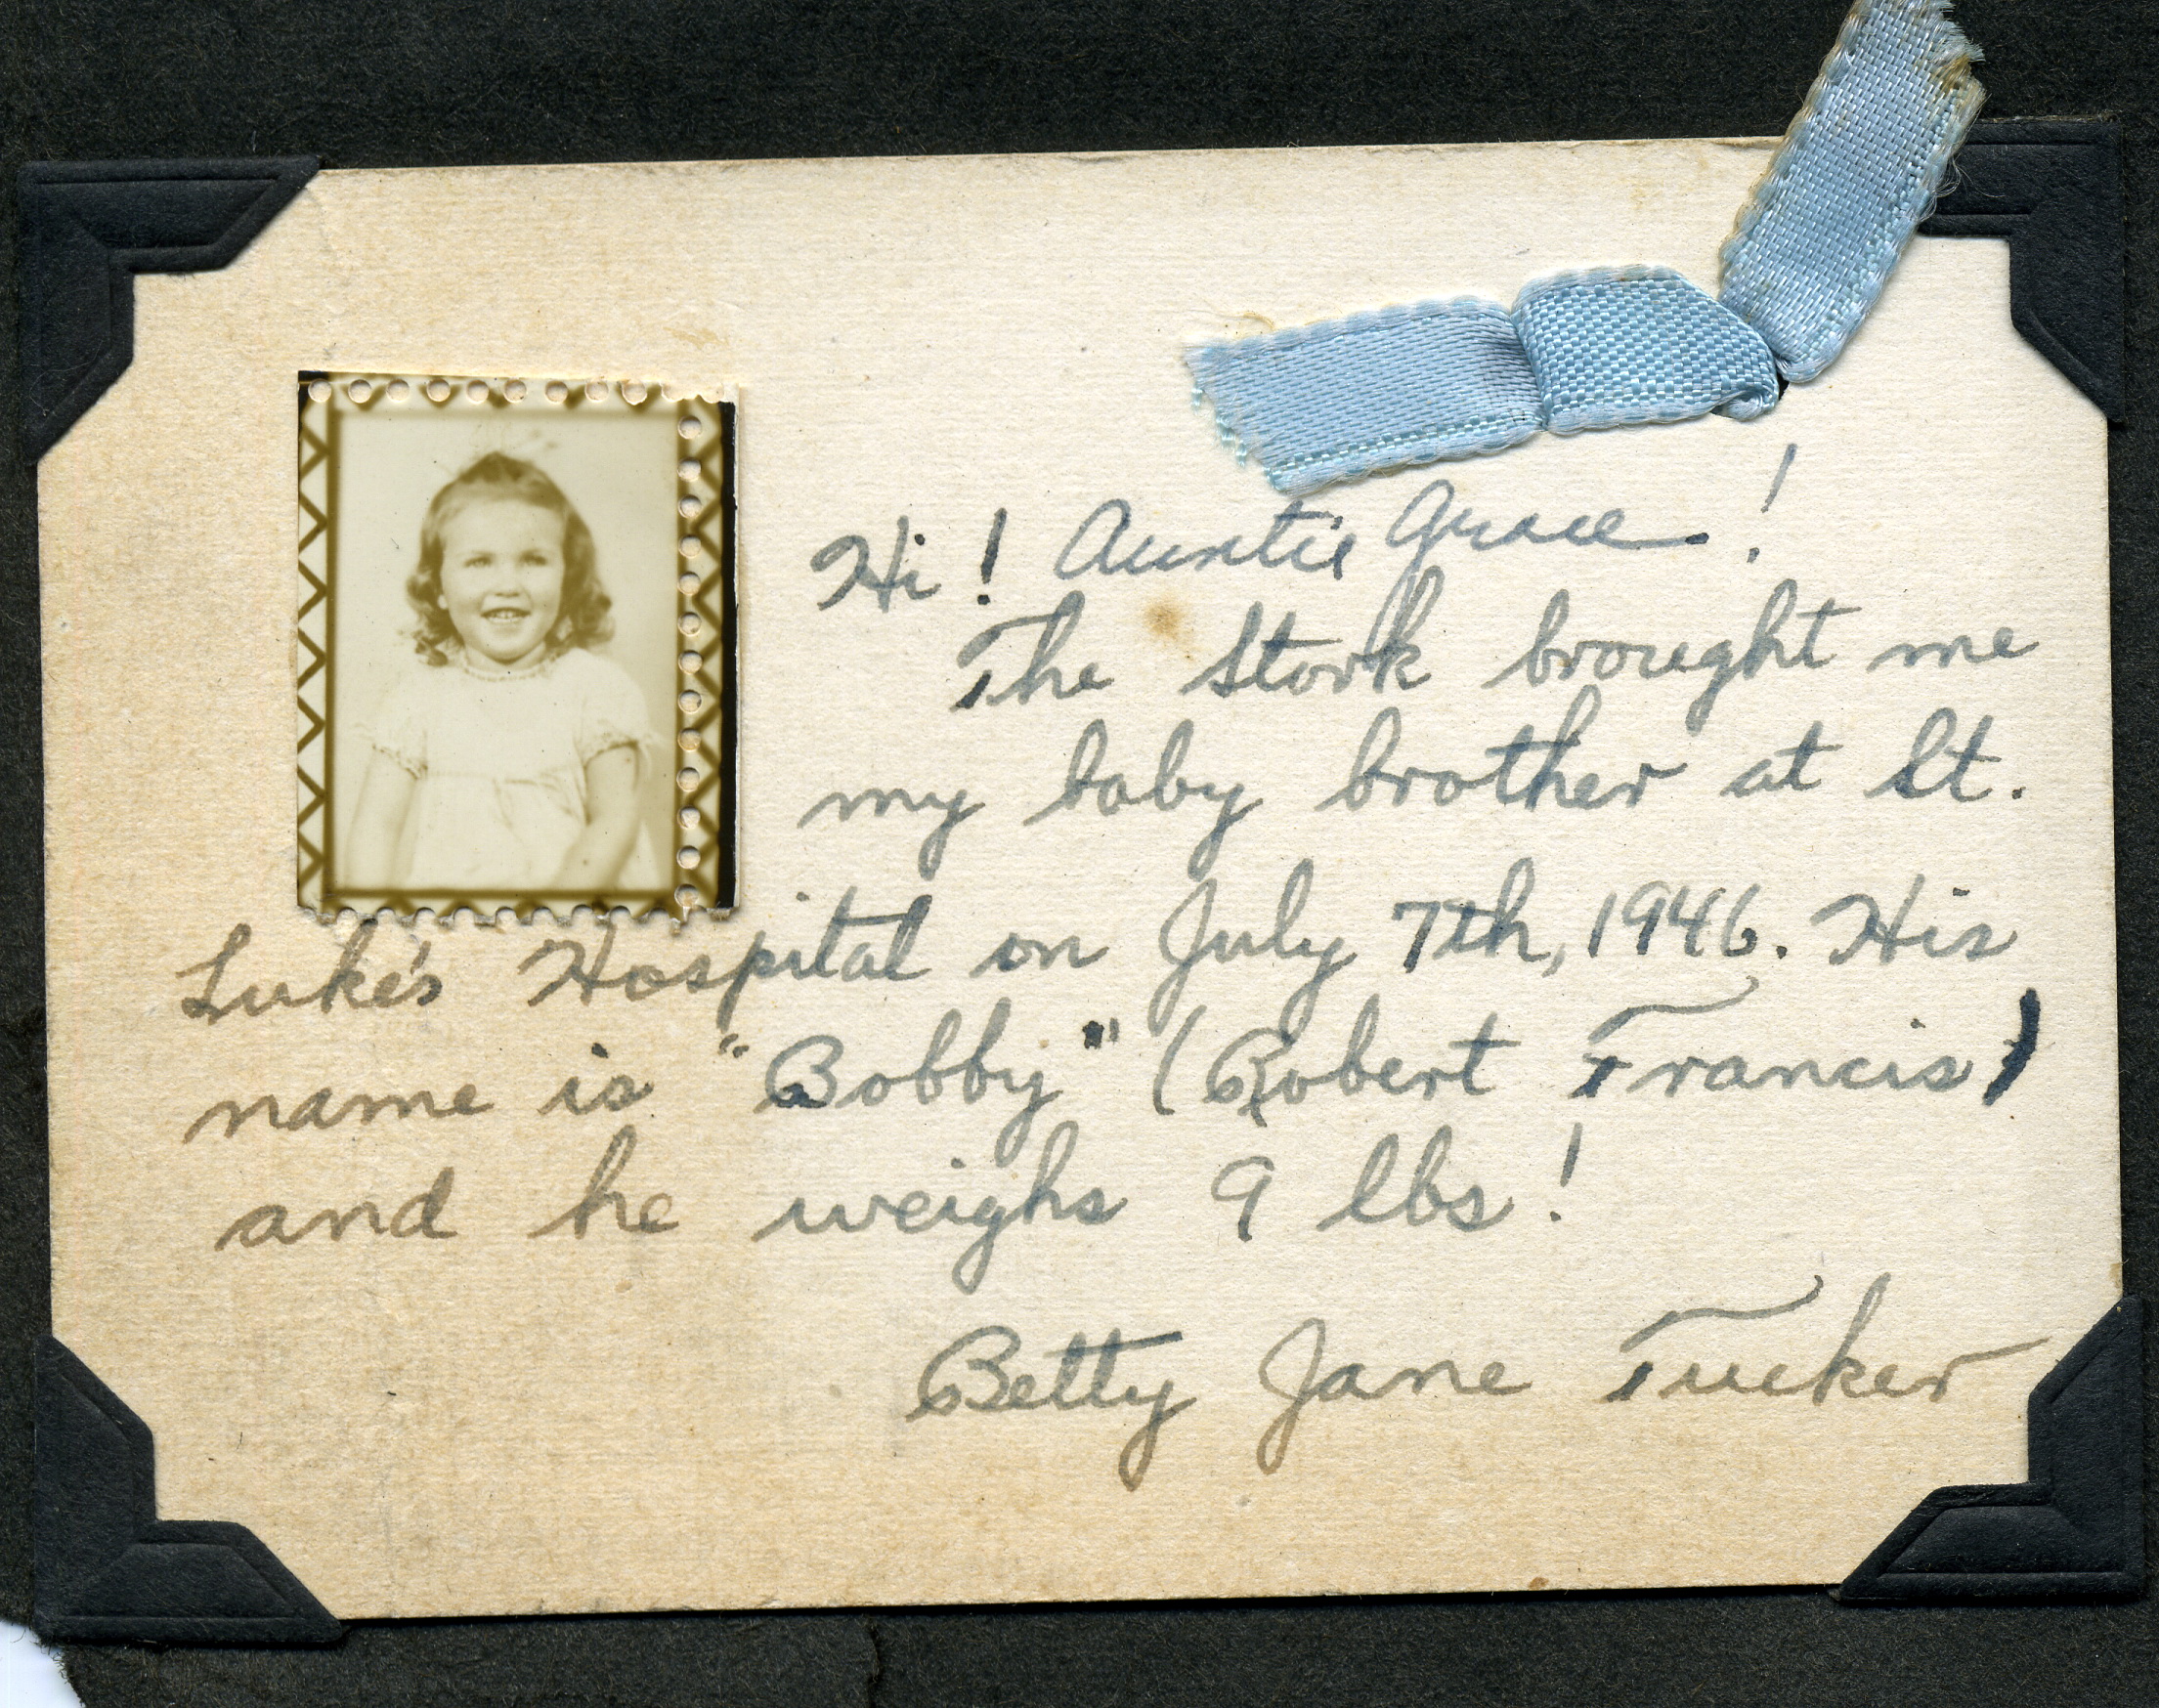 Hi! Auntie Grace!
The Stork brought me
my baby brother at St.
Luke's Hospital on July 7th, 1946. His
name is "Bobby" (Robert Francis)
and he weighs 9 lbs!
Betty Jane Tucker